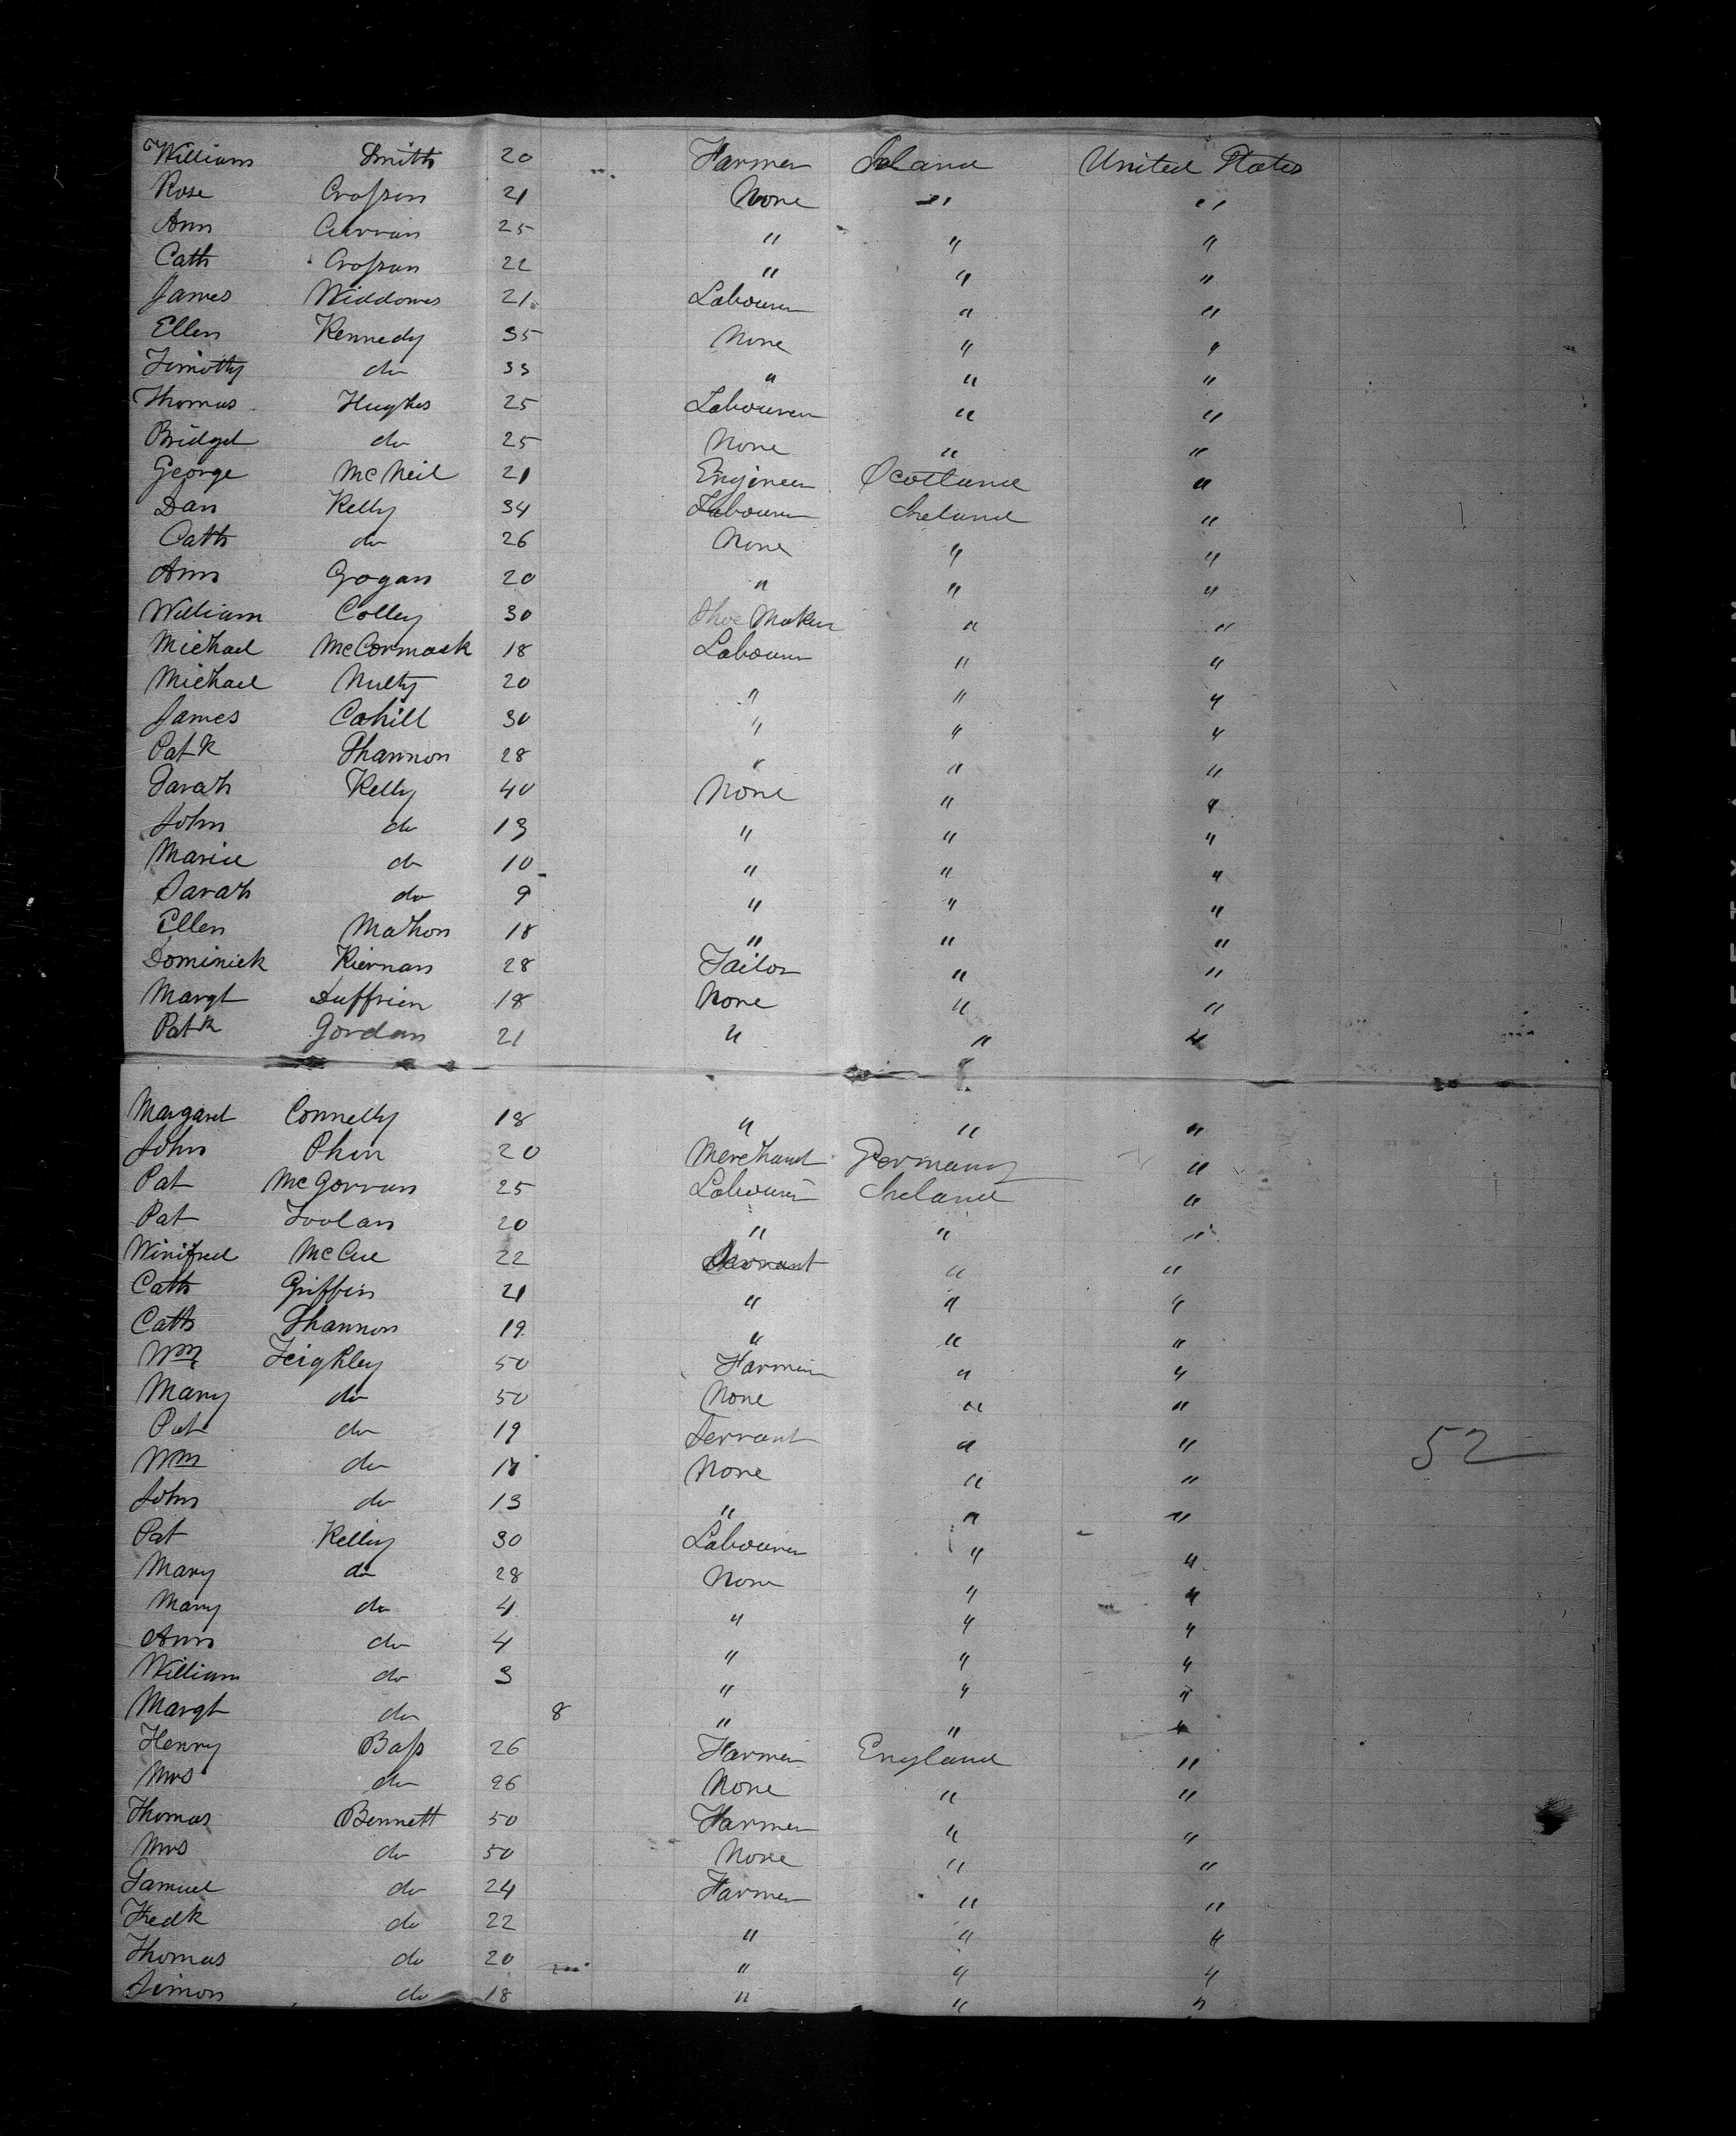 William Smith 20 Farmer Ireland United States
Rose Crossen 21 None " "
Ann Curran 25 " " "
Cath Crossan 22 " " "
James Widdows 21 Labourer " "
Ellen Kennedy 35 None " "
Timothy do 33 " " "
Thomas Hughes 25 Labourer " "
Bridget do 25 None " "
George McNeil 21 Engineer Scotland "
Dan Kelly 34 Labourer Ireland "
Cath do 26 None " "
Ann Gogan 20 " " "
William Colley 30 Shoe Maker " "
Michael McCormack 18 Labourer " "
Michael Nulty 20 " " "
James Cahill 30 " " "
Patk Shannon 28 " " "
Sarah Kelly 40 None " "
John do 13 " " "
Maria do 10 " " "
Sarah do 9 " " "
Ellen Mahon 18 " " "
Dominick Kiernan 28 Tailor " "
Margt Duffrien 18 None " "
Patk Gordan 21 " " "
Margaret Connelly 18 " " "
John Phin 20 Merchant Germany "
Pat McGorran 25 Labourer Ireland "
Pat Toolan 20 " " "
Winifred McCue 22 Servant " "
Cath Griffin 21 " " "
Cath Shannon 19 " " "
Wm Feighley 50 Farmer " "
Mary do 50 None " "
Pat do 19 Servant " "
52
Wm do None " "
John do 13 " " "
Pat Kelly 30 Labourer " "
Mary do 28 None " "
Mary do 4 " " "
Ann do 4 " " "
William do 3 " " "
Margt do 8 " " "
Henry Bass 26 Farmer England "
Mrs do 26 None " "
Thomas Bennett 50 Farmer " "
Mrs do 50 None " "
Samuel do 24 Farmer " "
Fredk do 22 " " "
Thomas do 20 " " "
Simon do 18 " " "